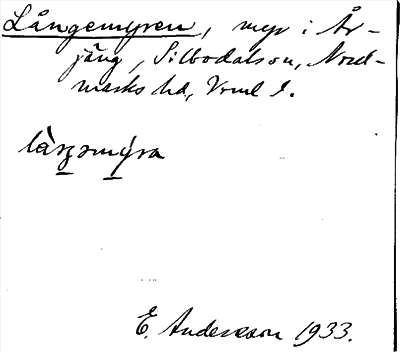 Långemyren, myr i År-
jäng, Silbodalssn, Nord-
marks hd, Vrml l.
E. Andersson 1933.